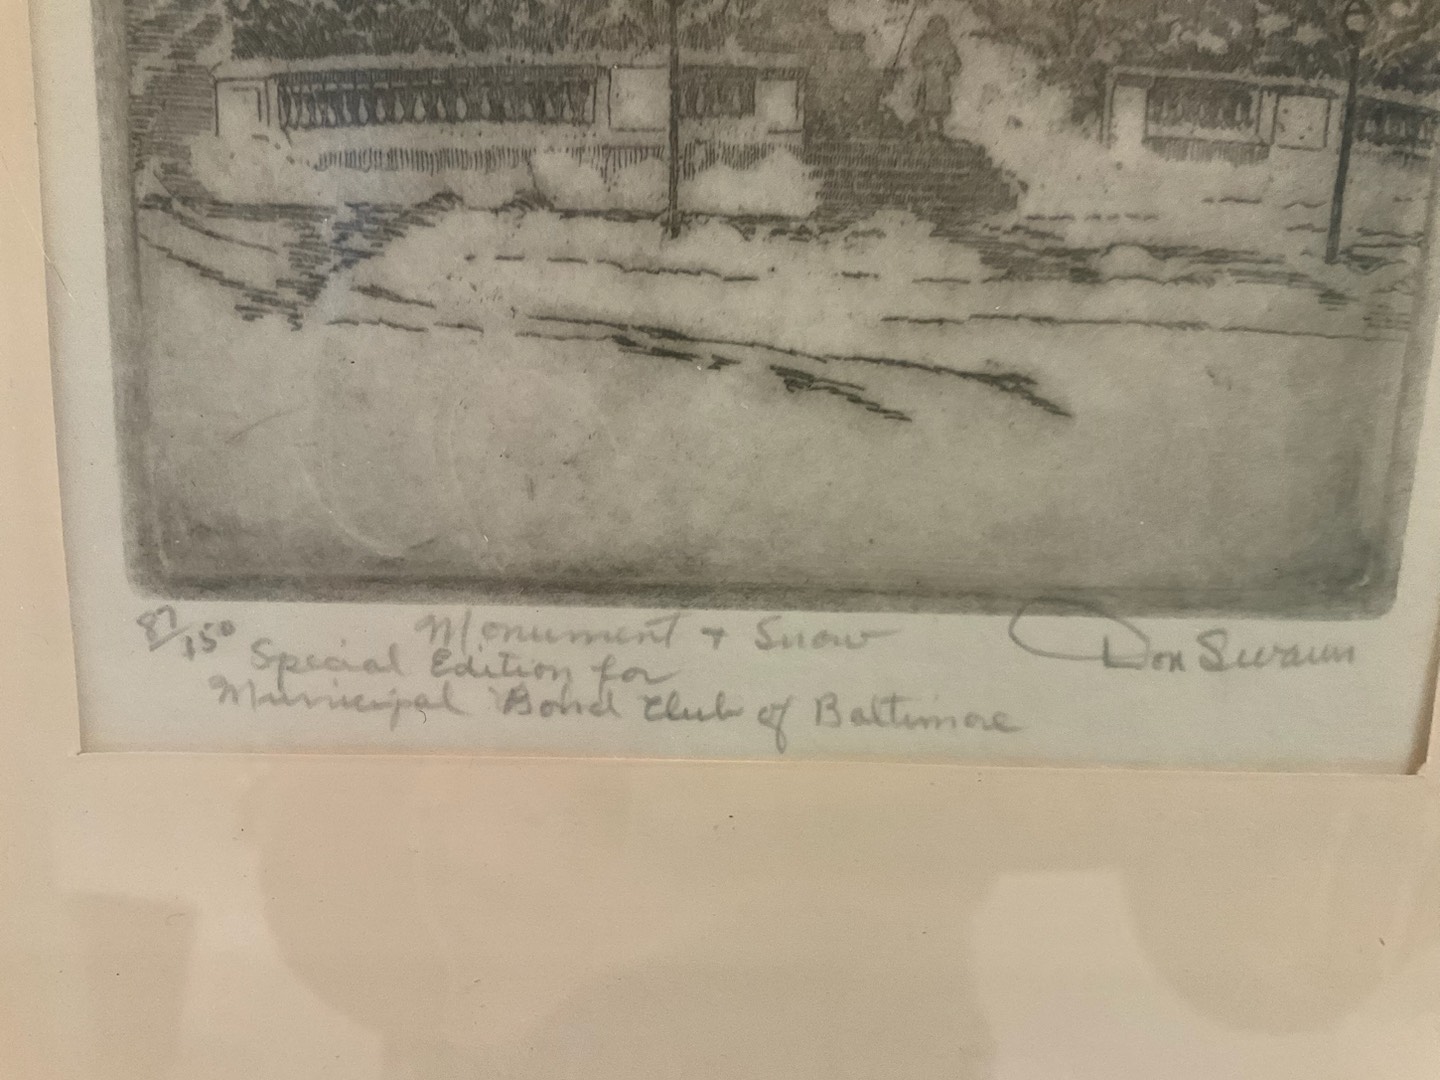 87/150 Monument + Snow Don Swann
Special Edition for
Municipal Bond Club of Baltimore